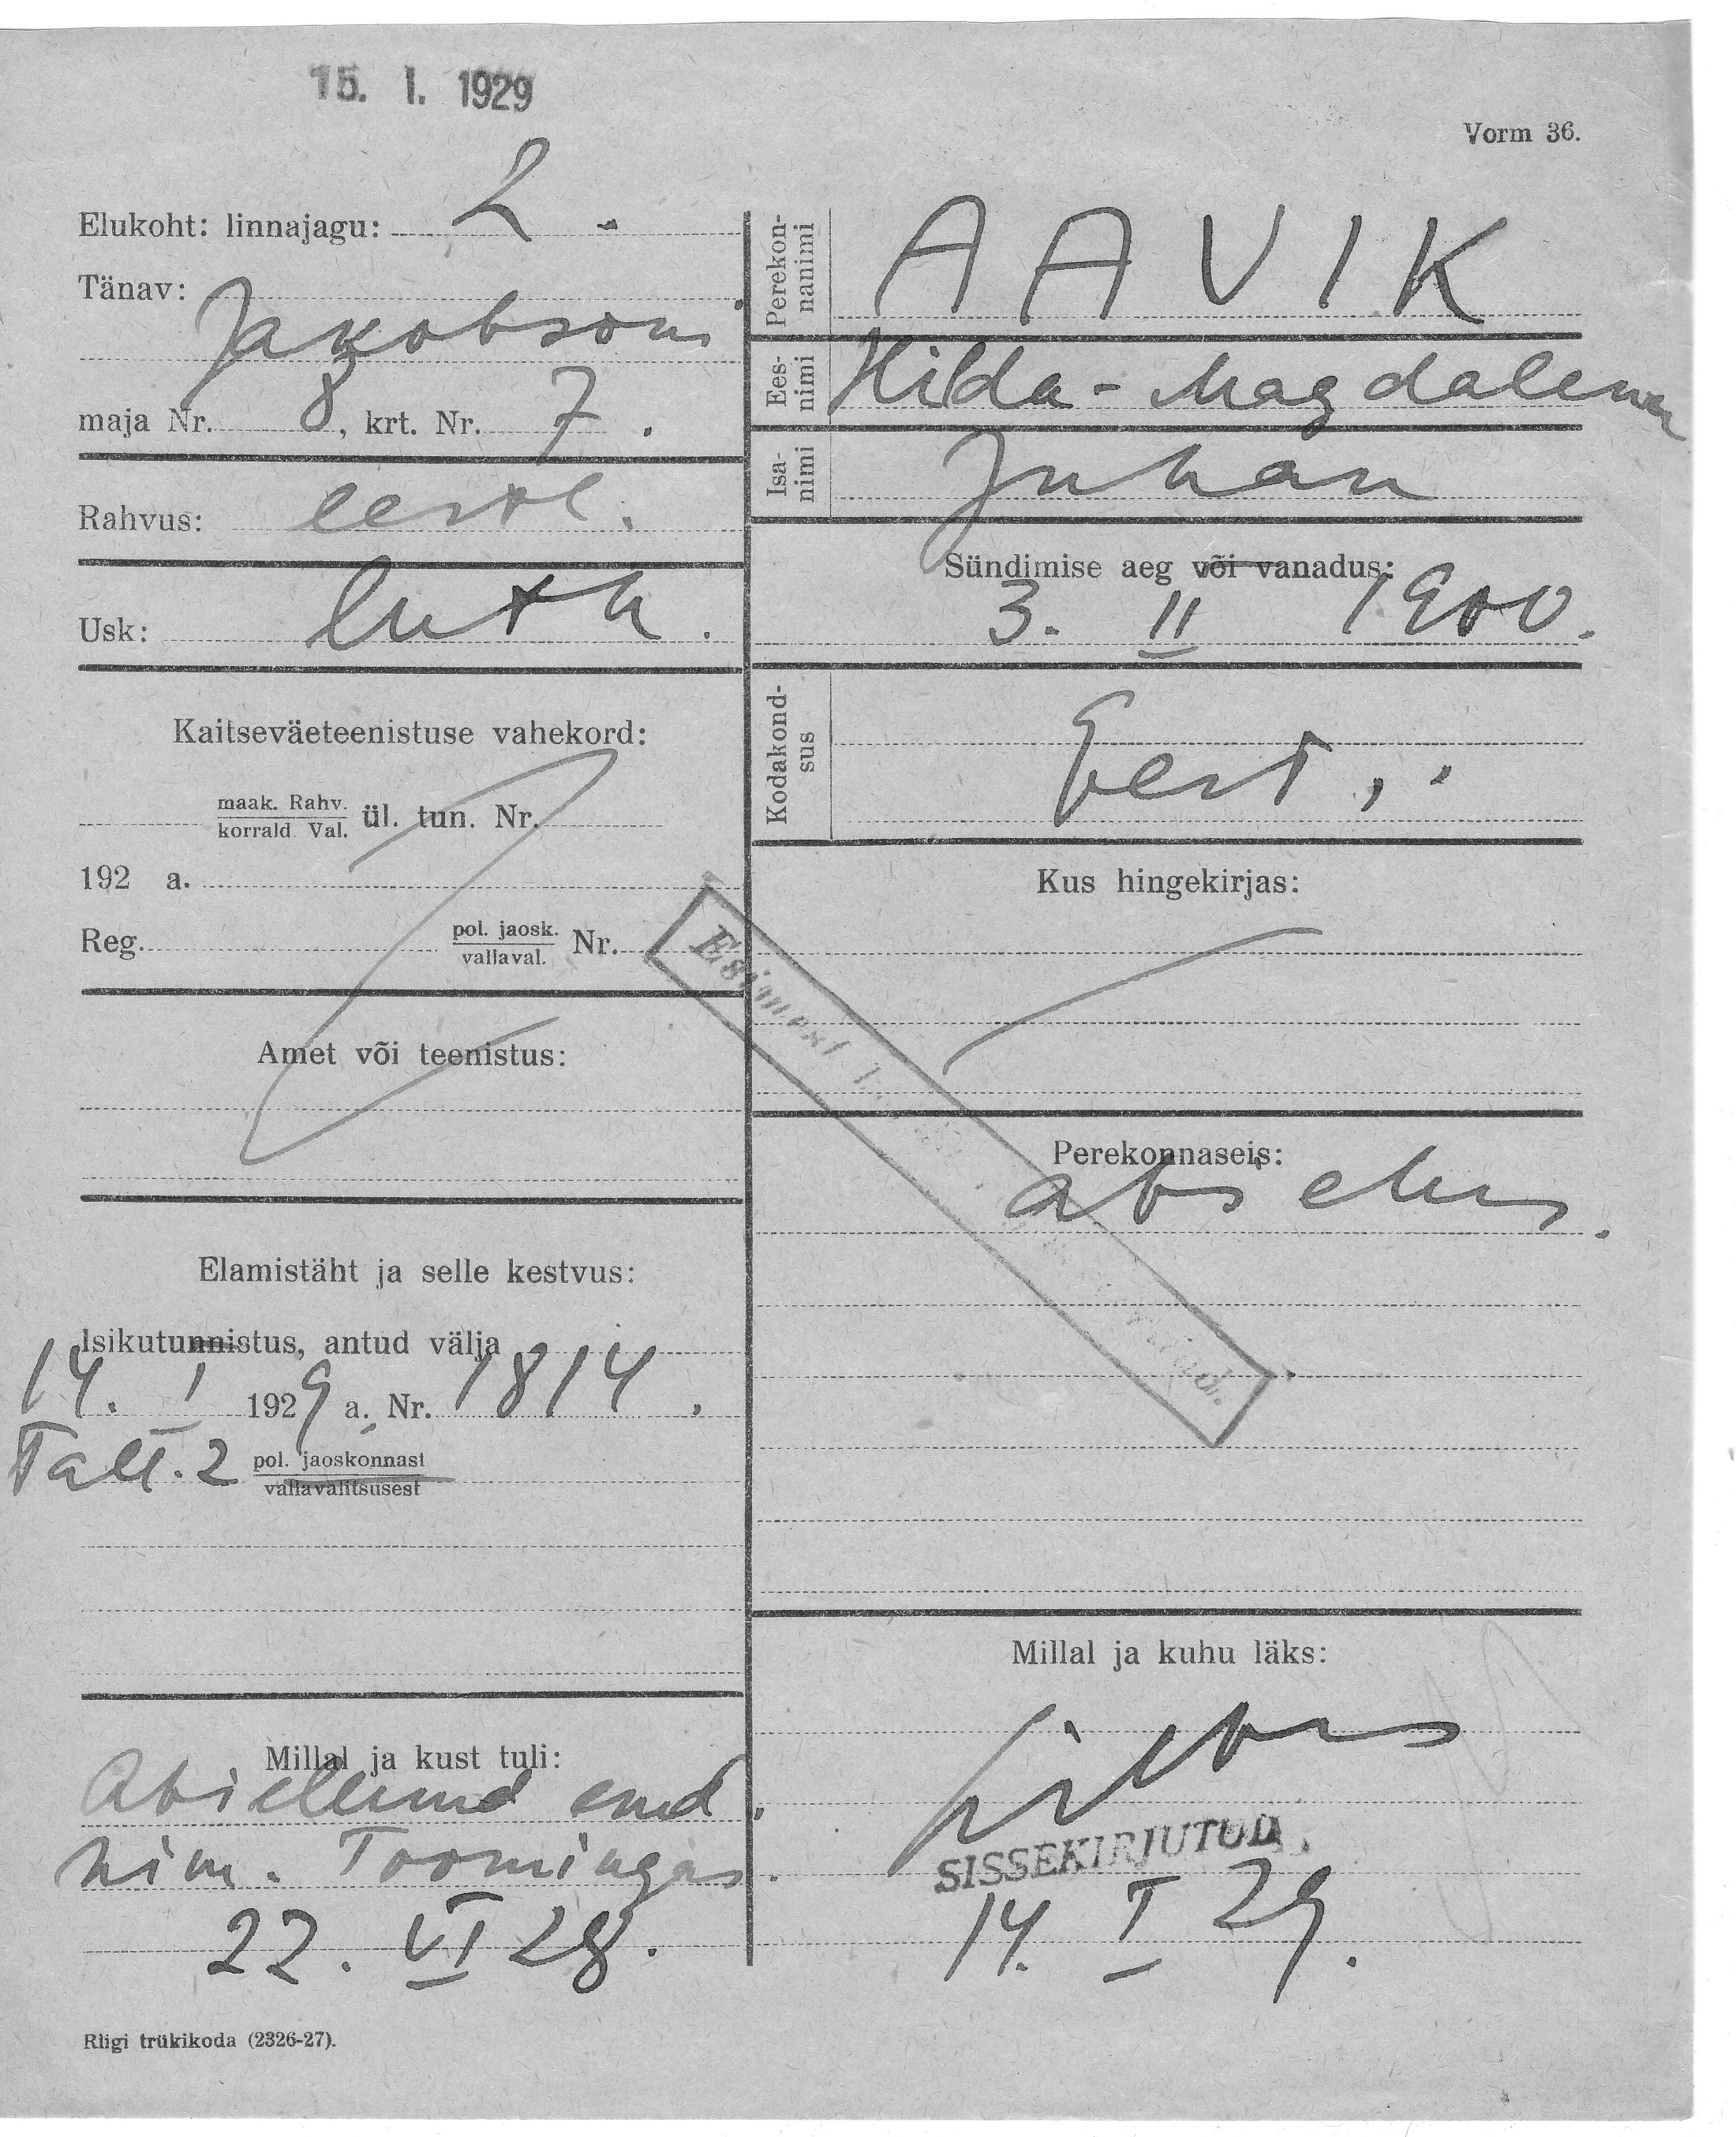 15. I. 1929
Vorm 36.
Elukoht: linnajagu: 2.
Tänav:
Jakobsoni
maja Nr. 8, krt. Nr. 7.
Rahvus: eestl.
Usk: luth.
Kaitseväeteenistuse vahekord:
maak. Rahv.
korrald. Val. ül. tun. Nr.
192 a.
Reg. pol. jaosk. Nr.
vallaval.
Amet või teenistus:
Elamistäht ja selle kestvus:
Isikutunnistus, antud välja
14. I 1929 a. Nr. 1814.
Tall. 2 pol. jaoskonnast
vallavalitsusest
Millal ja kust tuli:
Abiellund end.
nim. Toomingas.
22. VI 28.
Riigi trükikoda (2326-27).
Perekon-
nanimi AAVIK
Ees-
nimi Hilda-Magdalena
Isa-
nimi Juhan
Sündimise aeg või vanadus:
3. II 1900.
Kodakond-
sus Eest.
Kus hingekirjas:
Esimest
Perekonnaseis:
abielus.
Millal ja kuhu läks:
SISSEKIRJUTUD.
14. I 29.